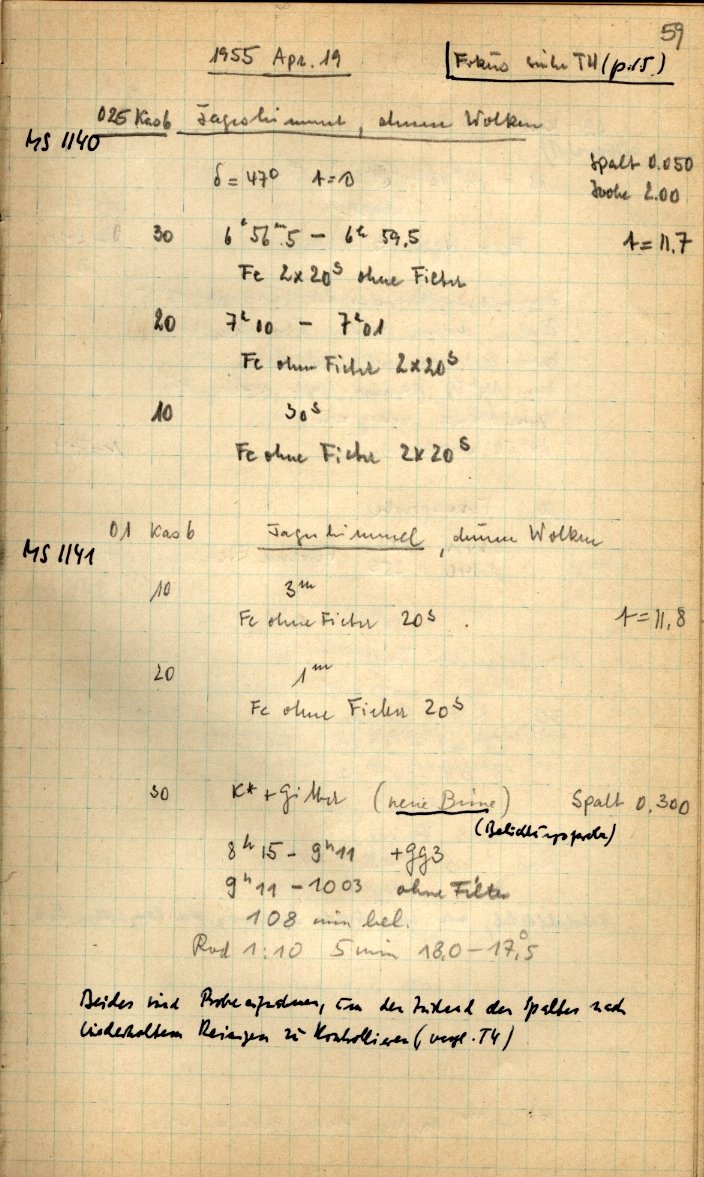 59
1955 Apr. 19
Fokus siehe T4 (p.15)
025 Kasb Tageshimmel, dünne Wolken
MS 1140
Spalt 0.050
δ = 47° t=0
2.00
30 6h 56m.5 – 6h 59,5 t=11,7
Fe 2x20s ohne Filter
20 7h 00 – 7h 01
Fe ohne Filter 2x20s
10 30s
Fe ohne Filter 2x20s
01 Kasb Tageshimmel, dünne Wolken
MS 1141
10 3m
Fe ohne Filter 20s t=11,8
20 1m
Fe ohne Filter 20s
30 K* + Gitter (neue Birne) Spalt 0,300
(Belichtungsprobe)
8h 15 – 9h 11 + gg3
9h 11 – 10 03 ohne Filter
108 min bel.
Rod 1:10 5 min 18,0 – 17°,5
Beides sind Probeaufnahmen, um den Zustand des Spaltes nach
wiederholtem Reinigen zu kontrollieren (vergl. T4)